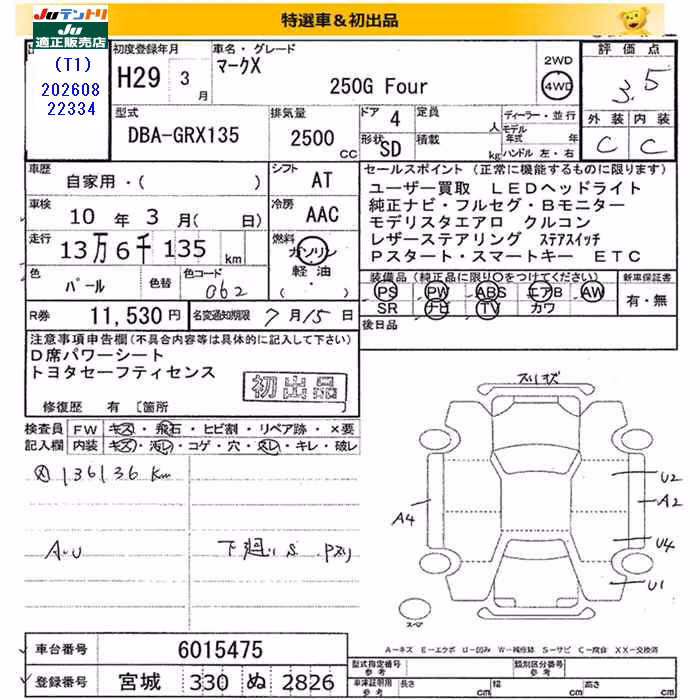 特選車＆初出品
Juテントリ
Ju
適正販売店
(T1)
202608
22334
初度登録年月
H29 3月
車名・グレード
マークX
250G Four
2WD
4WD
評価点
3.5
外装 内装
C C
型式
DBA-GRX135
排気量
2500 cc
ドア 4
定員 人
形状 SD
積載 kg
ディーラー・並行
モデル年式 年
ハンドル 左・右
車歴
自家用・( )
シフト AT
車検
10年3月( 日)
冷房 AAC
走行
13万6千135 km
燃料
ガソリン
軽油
・( )
色
パール
色替
色コード
062
R券 11,530円
名変通知期限 7月15日
セールスポイント (正常に機能するものに限ります)
ユーザー買取 LEDヘッドライト
純正ナビ・フルセグ・Bモニター
モデリスタエアロ クルコン
レザーステアリング ステアスイッチ
Pスタート・スマートキー ETC
装備品(純正品に限り○をつけてください)
新車保証書
PS PW ABS エアB AW
有・無
SR ナビ TV カワ
後日品
注意事項申告欄(不具合内容等は具体的に記入して下さい)
D席パワーシート
トヨタセーフティセンス
初出品
修復歴 有 [箇所
検査員 FW キズ・飛石・ヒビ割・リペア跡・×要
記入欄 内装 キズ・汚レ・コゲ・穴・スレ・キレ・破レ
136136 Km
A・U
下廻りS
A4
U2
A2
U4
U1
スペア
A－キズ E－エクボ U－凹み W－補修跡 S－サビ C－腐食 XX－交換済
車台番号 6015475
登録番号 宮城 330 ぬ 2826
型式指定番号 参考
類別区分番号 参考
車体証明用 参考
長さ cm
幅 cm
高さ cm